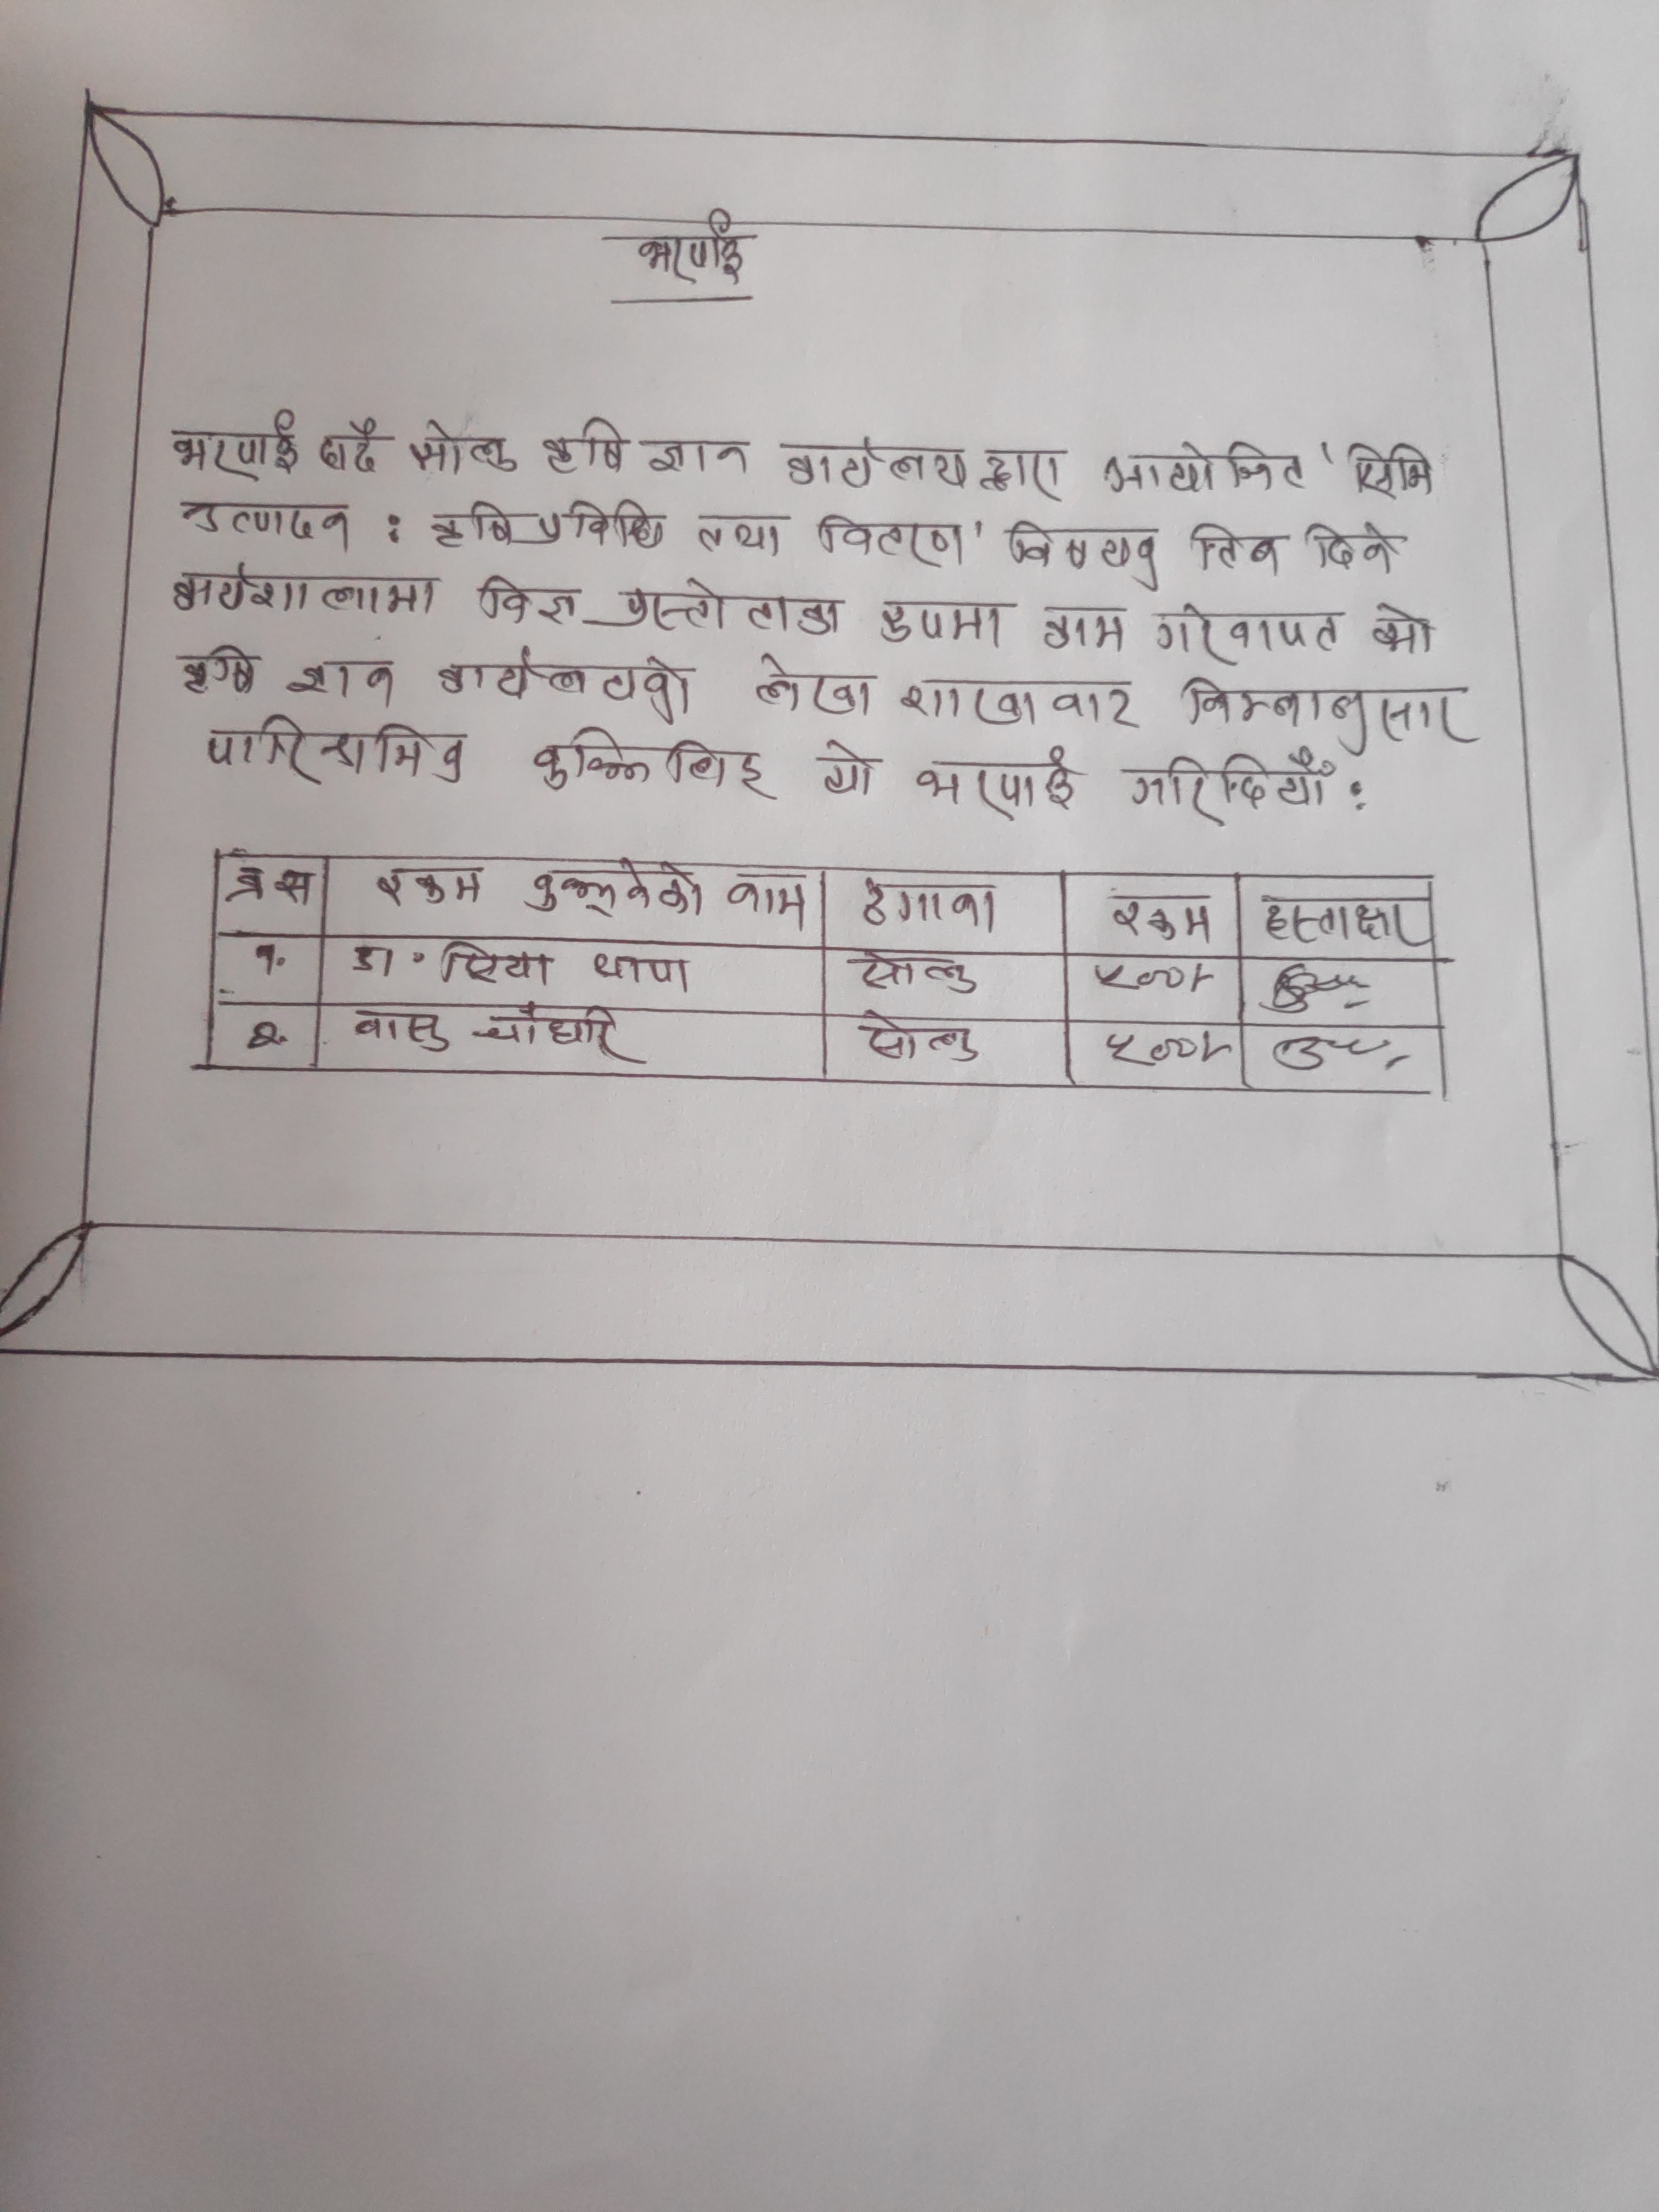 भरपाई
भरपाई गर्दै सोलु कृषि ज्ञान कार्यलयद्वारा आयोजित 'सिमि
उत्पादन : कृषि प्रविधि तथा वितरण' विषयक तिन दिने
कार्यशालामा विज्ञ प्रस्तोताका रुपमा काम गरेवापत सो
कृषि ज्ञान कार्यलयको लेखा शाखावाट निम्नानुसार
पारिश्रामिक बुझिलिइ यो भरपाई गरिदियौँ :
क्र स रकम बुझ्नेको नाम ठेगाना रकम हस्ताक्षर
१. डा. सिया थापा सोलु ५०००।-
२. वासु चौधरि सोलु ५०००।-